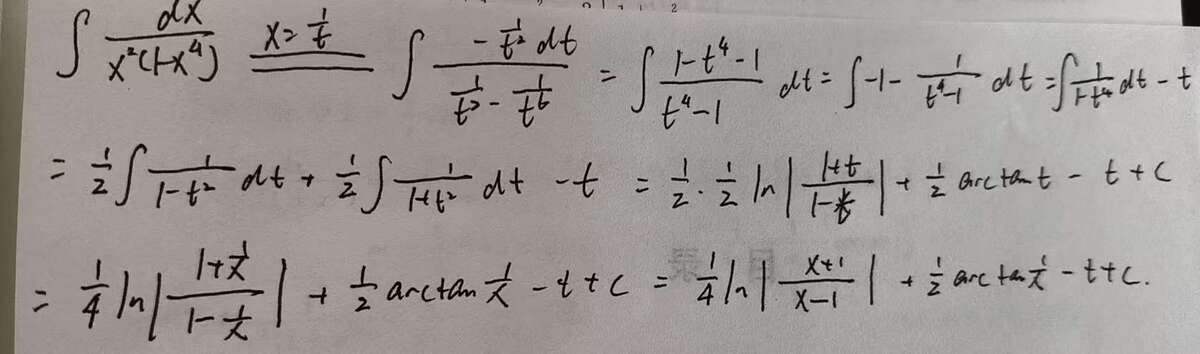 ∫ dx/(x²(1-x⁴)) x=1/t ∫ (-1/t² dt)/(1/t² - 1/t⁶) = ∫ (1-t⁴-1)/(t⁴-1) dt = ∫ -1 - 1/(t⁴-1) dt = ∫ 1/(1-t⁴) dt - t
= 1/2 ∫ 1/(1-t²) dt + 1/2 ∫ 1/(1+t²) dt - t = 1/2 · 1/2 ln|(1+t)/(1-t)| + 1/2 arctan t - t + C
= 1/4 ln|(1+1/x)/(1-1/x)| + 1/2 arctan 1/x - t + C = 1/4 ln|(x+1)/(x-1)| + 1/2 arctan 1/x - t + C.